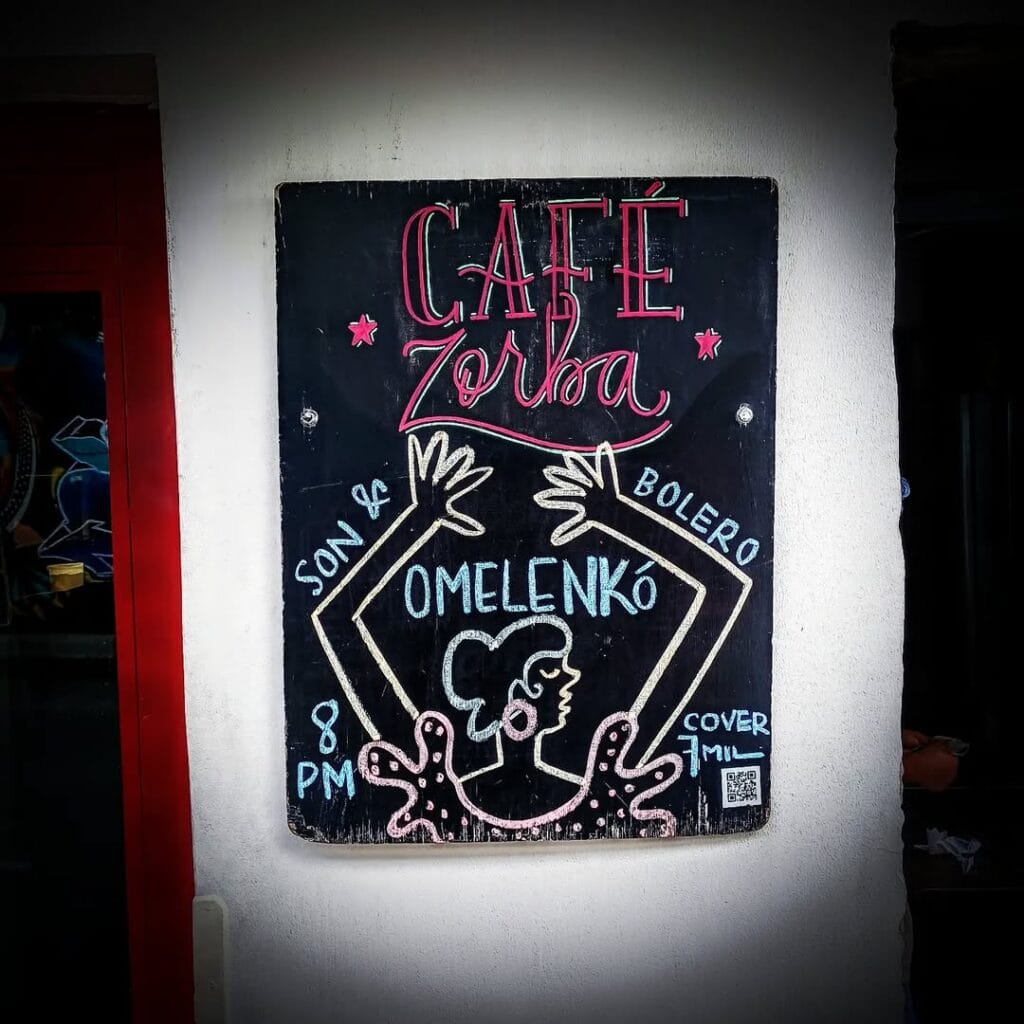 CAFÉ
Zorba
SON & BOLERO
OMELENKÓ
8
PM
COVER
7 MIL